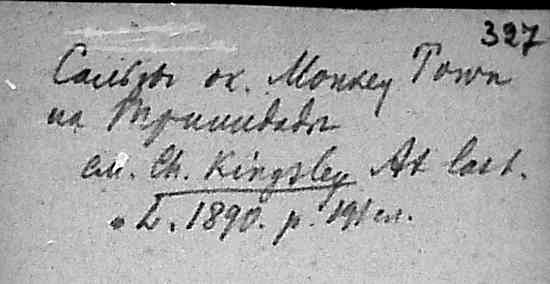 327
Сальзы ок. Monkey Town
на Тринидаде
см. Ch. Kingsley At last.
L. 1890. p. 191 сл.